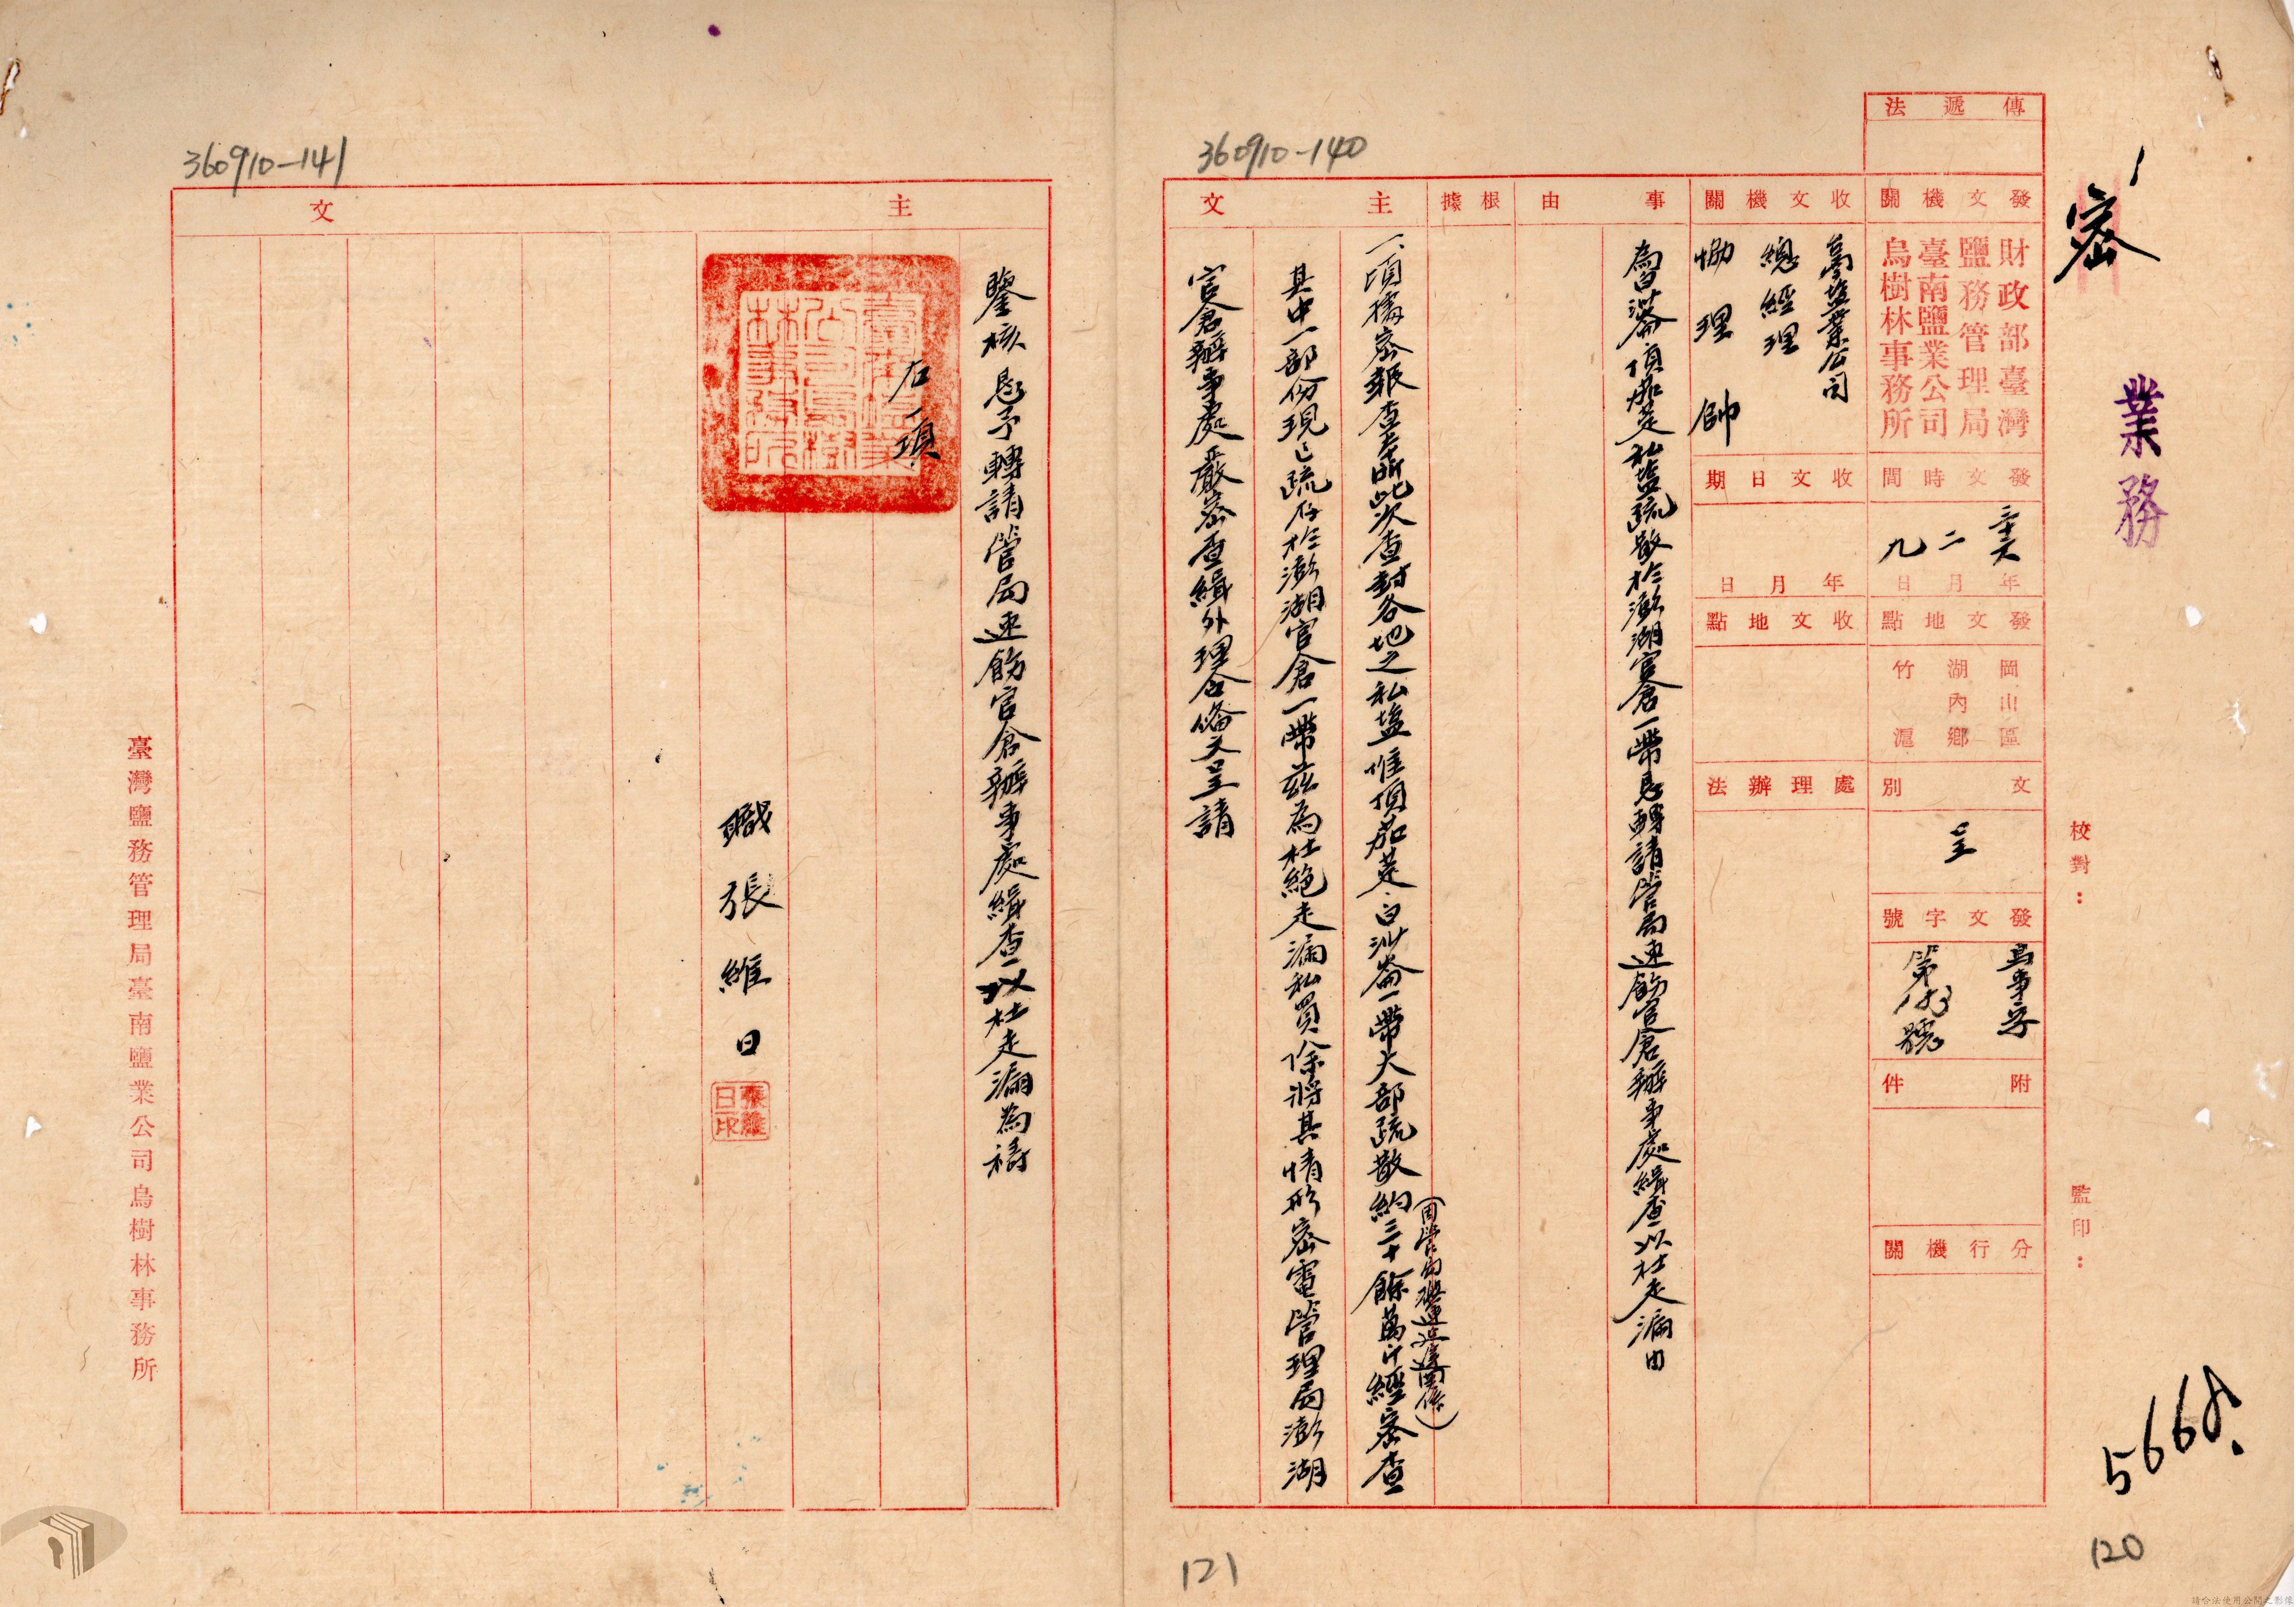 密
業務
校對：
監印：
5668
120
360910-140
傳遞法
發文機關
財政部臺灣
鹽務管理局
臺南鹽業公司
烏樹林事務所
發文時間
三十六年二月九日
發文地點
岡山區
湖內鄉
竹滬
文別
呈
發文字號
烏事字
第183號
附件
分行機關
收文機關
臺南塩業公司
總經理
協理 帥
收文日期
年月日
收文地點
處理辦法
事由
為白沙崙頂茄萣私塩疏散於澎湖官倉一帶懇轉請管局速飭官倉辦事處緝查以杜走漏由
根據
主文
一、頃據密報查本所此次查封各地之私塩惟頂茄萣、白沙崙一帶大部疏散約三十餘萬斤經密查
其中一部份現已疏存於澎湖官倉一帶茲為杜絕走漏私買除將其情形密電管理局澎湖
官倉辦事處嚴密查緝外理合備文呈請
121
360910-141
主文
鑒核懇予轉請管局速飭官倉辦事處緝查以杜走漏為禱
右一項
臺南鹽業公司烏樹林事務所
職張維日
張維日印
臺灣鹽務管理局臺南鹽業公司烏樹林事務所
請合法使用公開之影像